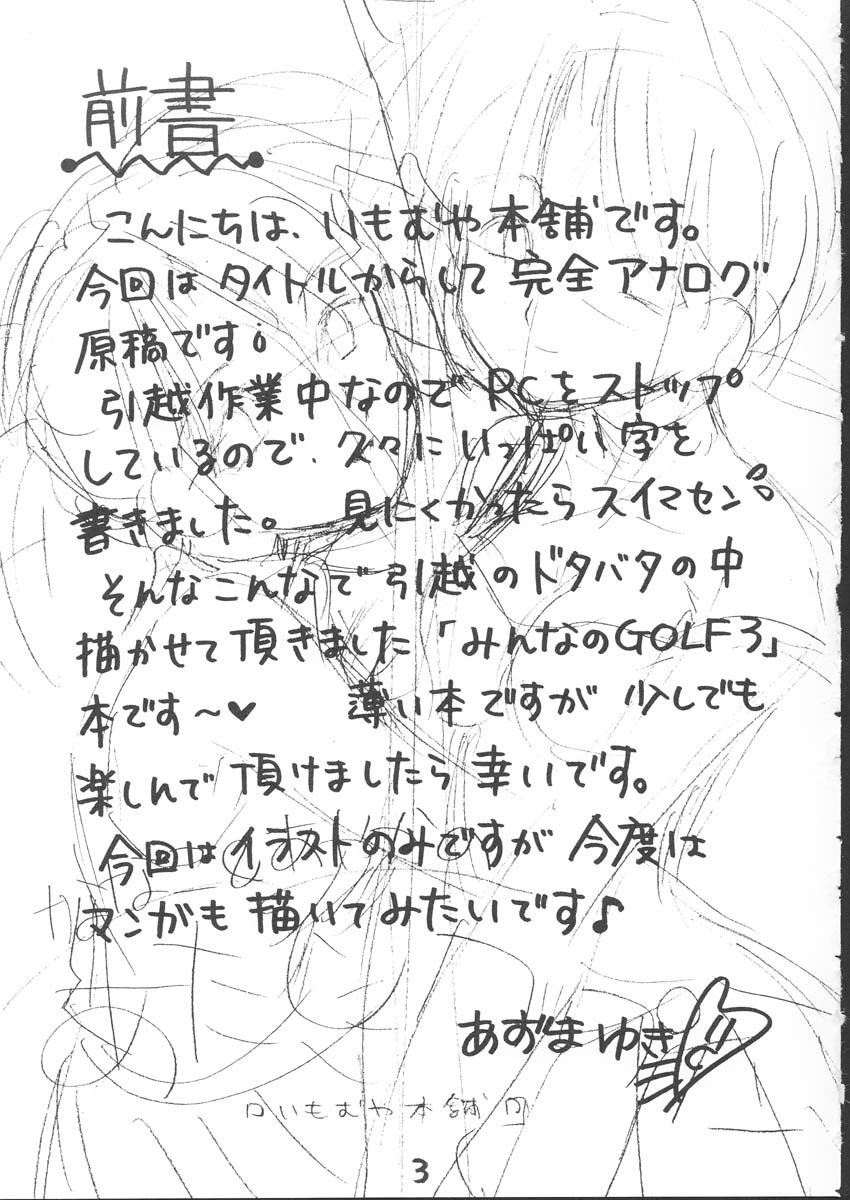 前書
こんにちは、いもむや本舗です。
今回はタイトルからして完全アナログ
原稿です
引越作業中なのでPCをストップ
しているので、久々にいっぱい字を
書きました。 見にくかったらスイマセン
そんなこんなで引越のドタバタの中
描かせて頂きました「みんなのGOLF3」
本です〜♥ 薄い本ですが少しでも
楽しんで頂けましたら幸いです。
今回はイラストのみですが今度は
マンガも描いてみたいです♪
あずまゆき
いもむや本舗
3